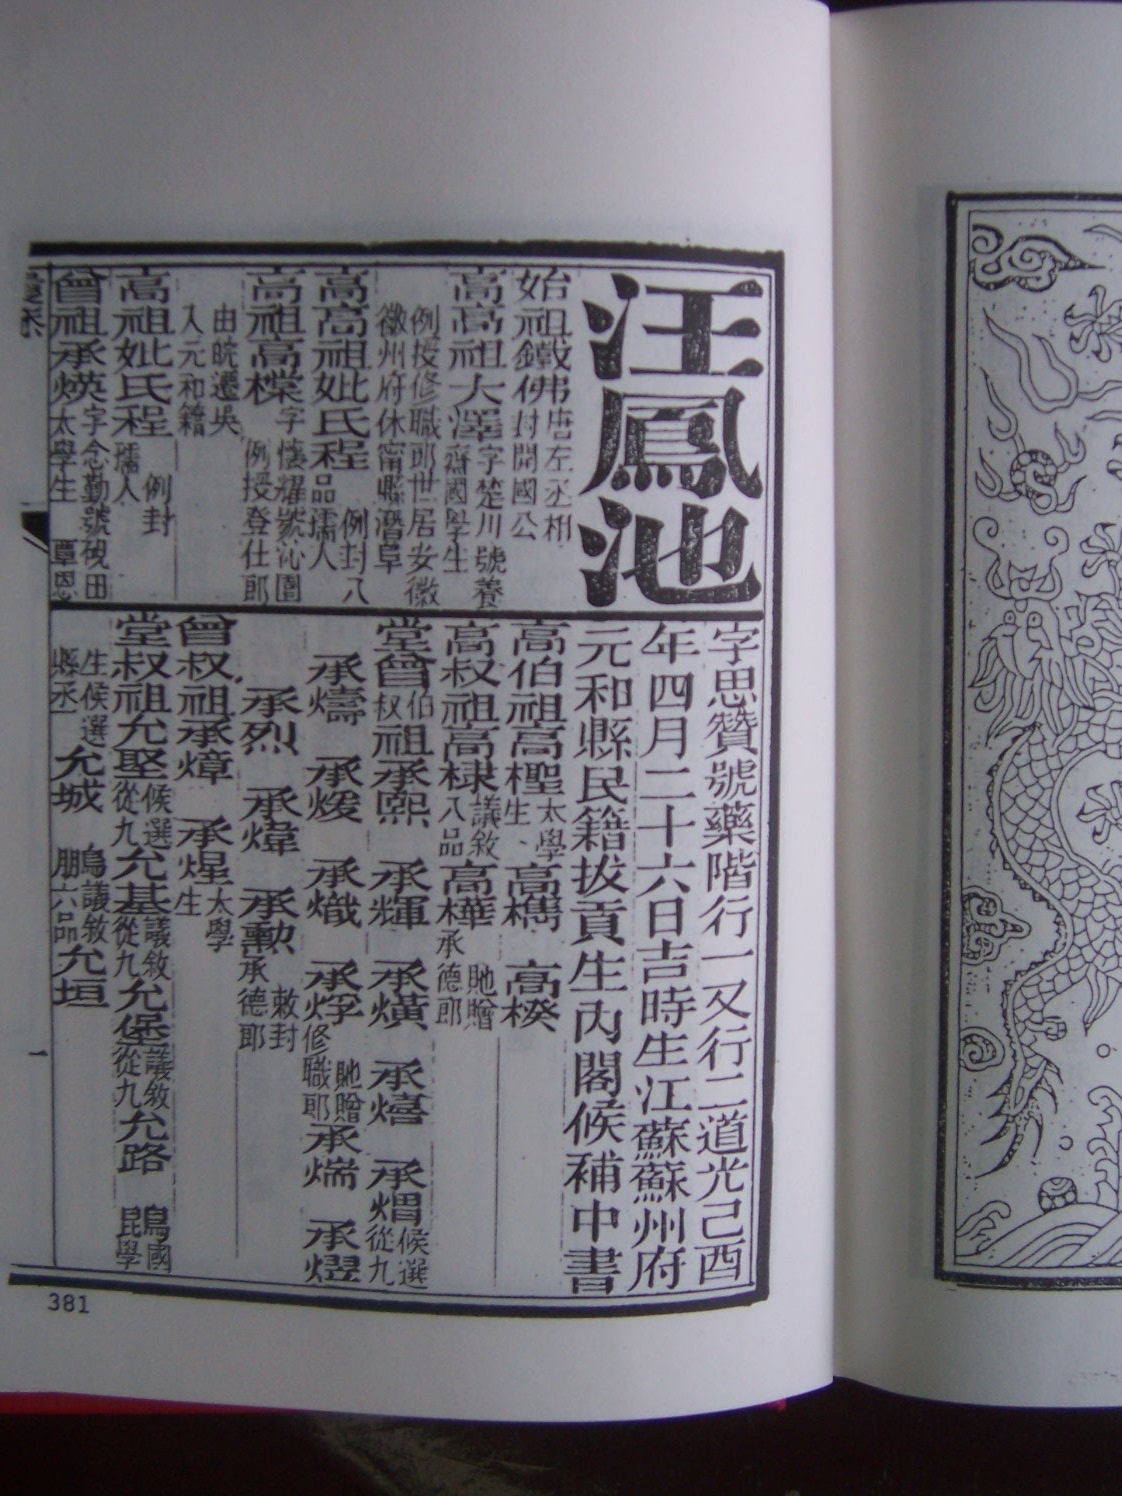 汪鳳池
字思贊號藥階行一又行二道光己酉
年四月二十六日吉時生江蘇蘇州府
元和縣民籍拔貢生內閣候補中書
始祖鐵佛唐左丞相封開國公
高高祖大澤字楚川號養齋國學生
例授修職郎世居安徽徽州府休甯縣潛阜
高高祖妣氏程例封八品孺人
高祖高櫟字懷耀號沁園例授登仕郎
由皖遷吳入元和籍
高祖妣氏程例封孺人
曾祖承煐字念勤號硯田太學生覃恩
高伯祖高檉太學生、高檇 高楑
高叔祖高棣議敘八品高樺貤贈承德郎
堂曾伯叔祖承熙 承輝 承熿 承熺 承熠候選從九
承燾 承煖 承熾 承烰貤贈修職郎承煓 承熤
承烈 承煒 承勳敕封承德郎
曾叔祖承煒 承煋太學生
堂叔祖允堅候選從九允基議敘從九允堡議敘從九允路鳥國昆學
生候選縣丞允城鳥議敘朋六品允垣
381